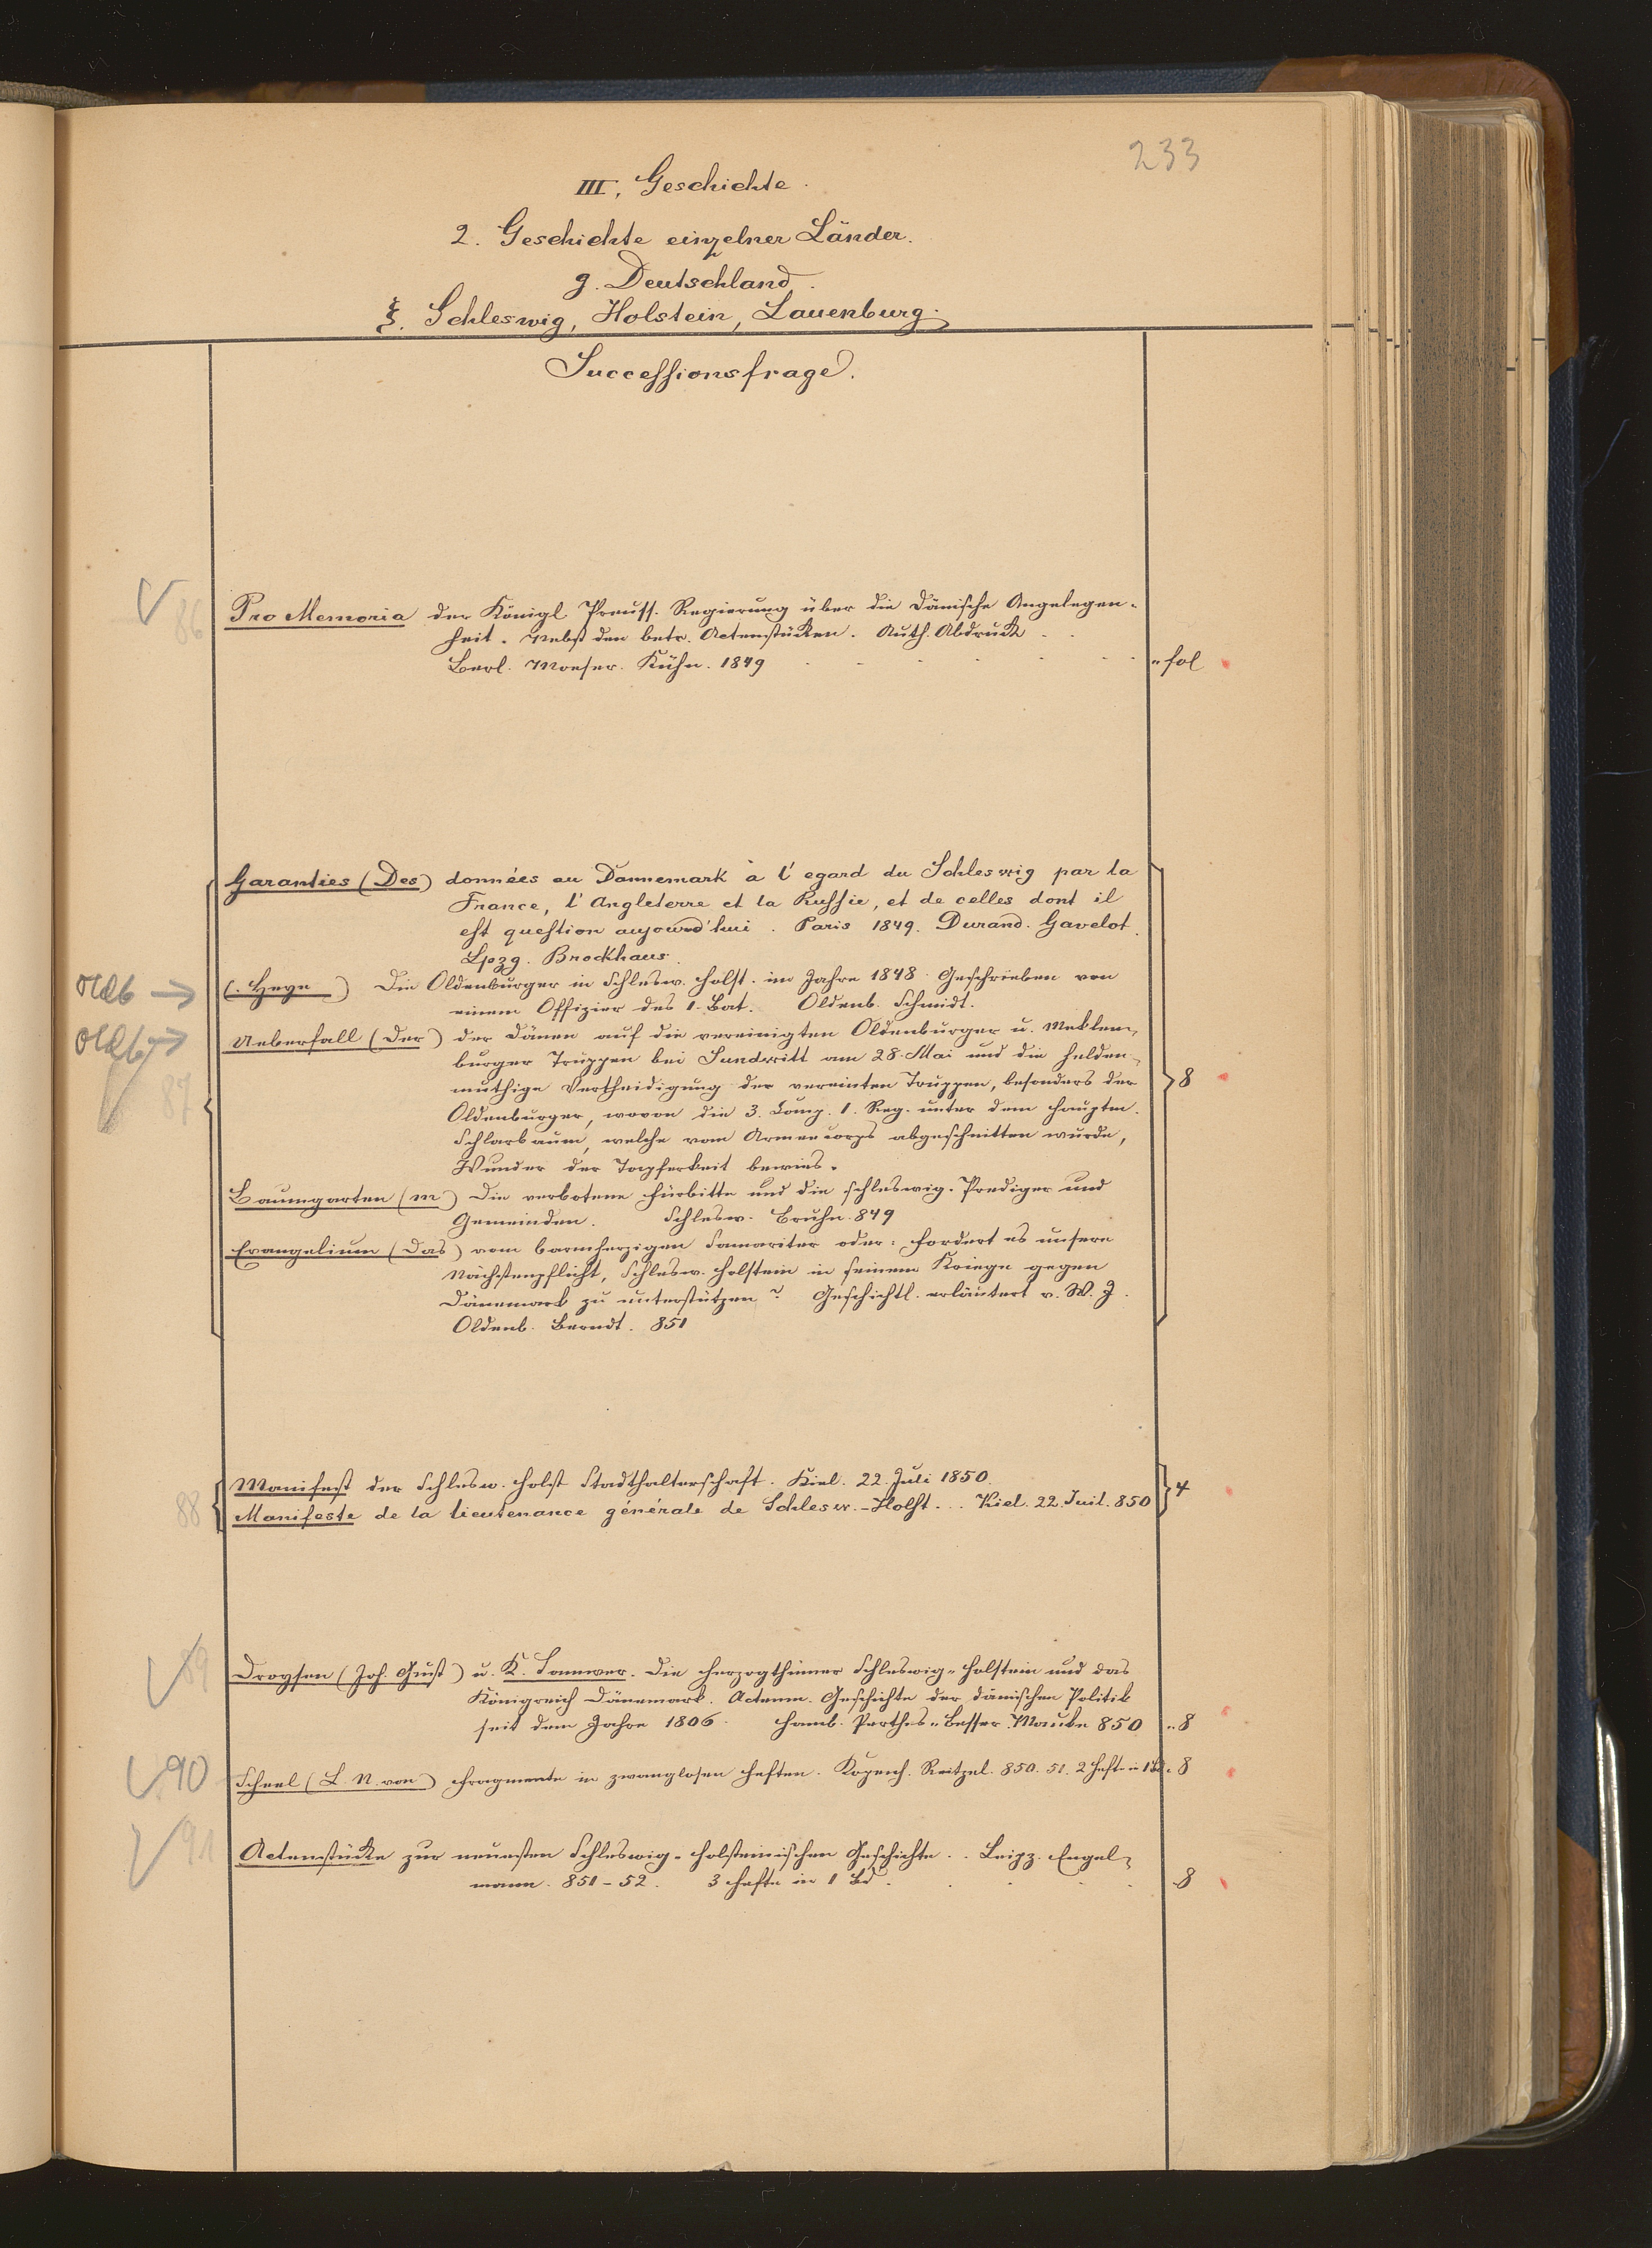 233
III. Geschichte.
2. Geschichte einzelner Länder.
g. Deutschland.
ξ. Schleswig, Holstein, Lauenburg.
Successionsfrage.
86 Pro Memoria der Königl. Preuss. Regierung über die Dänische Angelegen-
heit. Nebst den betr. Actenstücken. Auth. Abdruck
Berl. Moeser. Kühn. 1849 fol
Garanties (Des) données au Dannemark à l'egard du Schleswig par la
France, l'Angleterre et la Russie, et de celles dont il
est question aujourd'hui. Paris 1849. Durand. Gavelot.
Lpzg. Brockhaus.
Oldb → (. Heye) Die Oldenburger in Schlesw. Holst. im Jahre 1848. Geschrieben von
einem Offizier des 1. Bat. Oldenb. Schmidt.
Oldb → Ueberfall (Der) der Dänen auf die vereinigten Oldenburger u. Meklem-
burger Truppen bei Sundwitt am 28. Mai und die helden-
87 müthige Vertheidigung der vereinten Truppen, besonders der 8
Oldenburger, wovon die 3. Comp. 1. Reg. unter dem Hauptm.
Schlarbaum, welche vom Armeecorps abgeschnitten wurde,
Wunder der Tapferkeit bewies.
Baumgarten (M) Die verbotene Fürbitte und die schleswig. Prediger und
Gemeinden. Schlesw. Bruhn. 849
Evangelium (Das) vom barmherzigen Samariter oder: fordert es unsere
Nächstenpflicht, Schlesw. Holstein in seinem Kriege gegen
Dänemark zu unterstützen? Geschichtl. erläutert v. W. J.
Oldenb. Berndt. 851
Manifest der Schlesw. Holst Stadthalterschaft. Kiel. 22. Juli 1850.
88 Manifeste de la lieutenance générale de Schlesw.-Holst... Kiel. 22. Juil. 850 4
89 Droysen (Joh. Gust) u. K. Samwer. Die Herzogthümer Schleswig-Holstein und das
Königreich Dänemark. Actenm. Geschichte der dänischen Politik
seit dem Jahre 1806. Hamb. Perthes-Besser. Mauke 850 8
90 Scheel (L. N. von) Fragmente in zwanglosen Heften. Kopenh. Reitzel. 850. 51. 2 Hefte in 1 Bd. 8
91 Actenstücke zur neuesten Schleswig-Holsteinischen Geschichte.. Leipz. Engel-
mann. 851-52. 3 Hefte in 1 Bd. 8